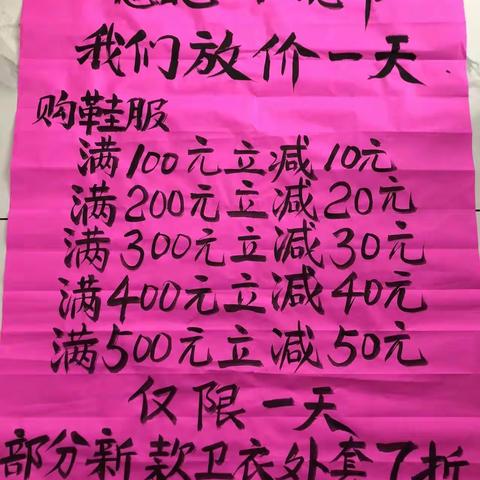 我们放价一天
购鞋服
满100元立减10元
满200元立减20元
满300元立减30元
满400元立减40元
满500元立减50元
仅限一天
部分新款卫衣外套7折